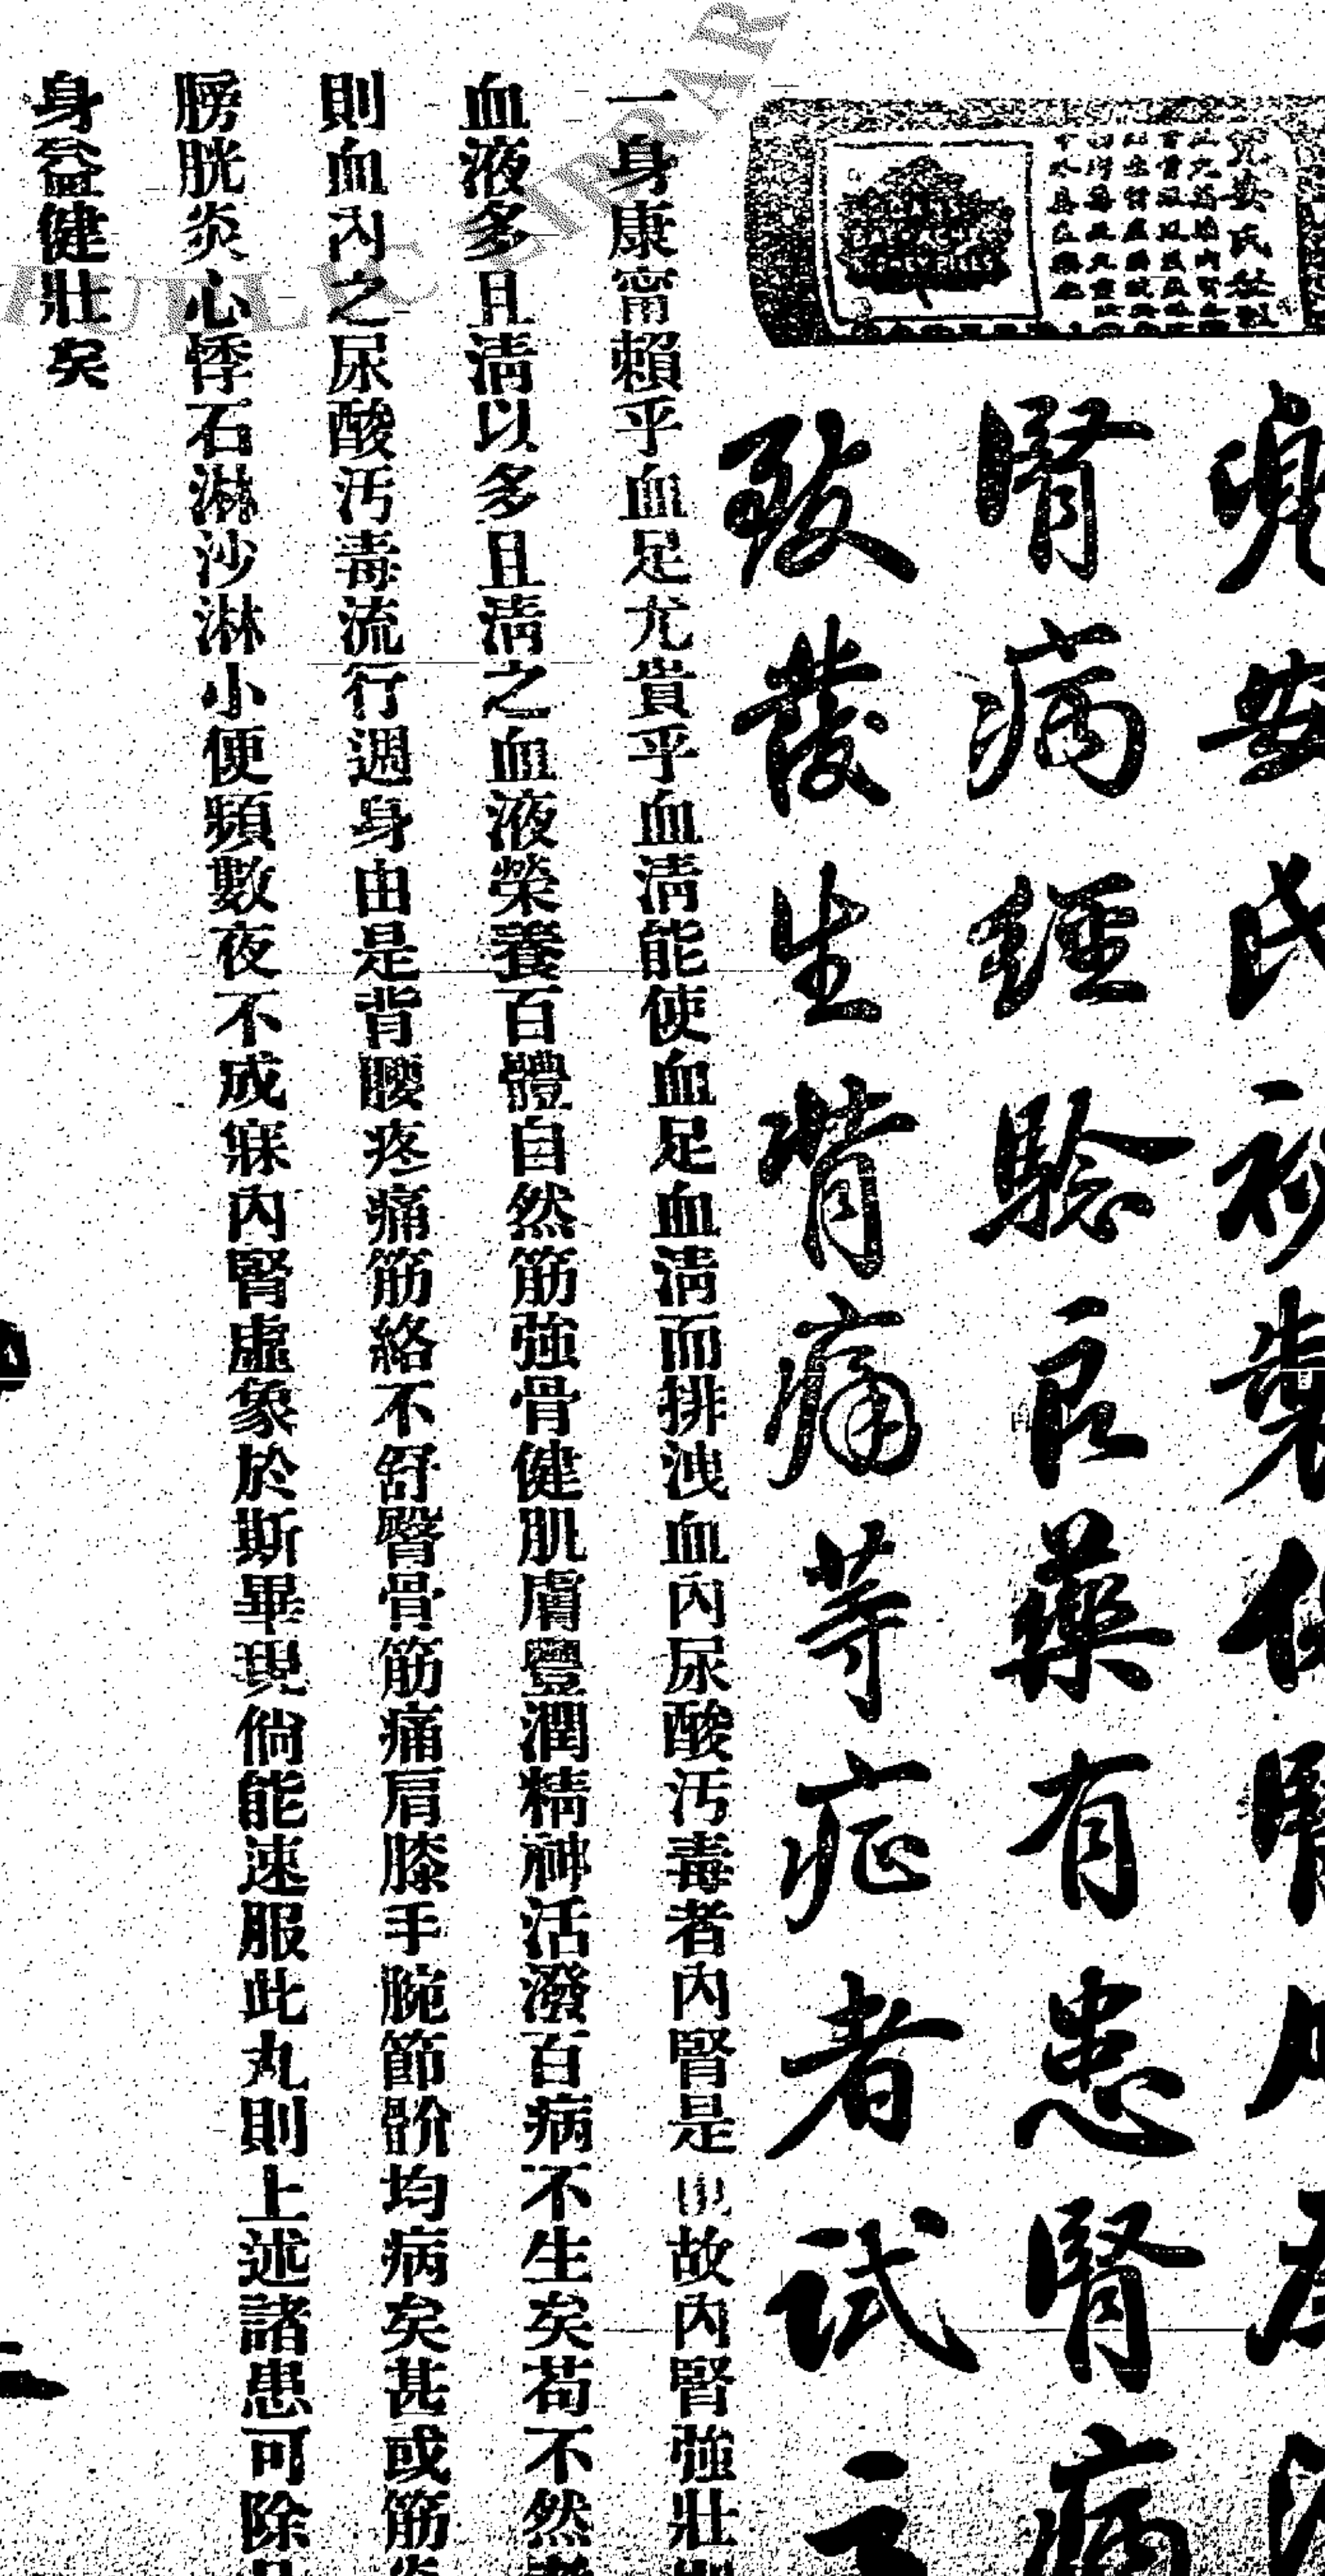 兜安氏秘製保腎丸
腎病經驗良藥有患腎病
致發生背痛等症者試之
KIDNEY PILLS
一身康甯賴乎血足尤貴乎血淸能使血足血淸而排洩血內尿酸汚毒者內腎是也故內腎強壯則
血液多且淸以多且淸之血液榮養百體自然筋強骨健肌膚豐潤精神活潑百病不生矣苟不然者
則血內之尿酸汚毒流行週身由是背腰疼痛筋絡不舒臀骨筋痛肩膝手腕節骱均病矣甚或筋炎
膀胱炎心悸石淋沙淋小便頻數夜不成寐內腎虛象於斯畢現倘能速服此丸則上述諸患可除
身益健壯矣